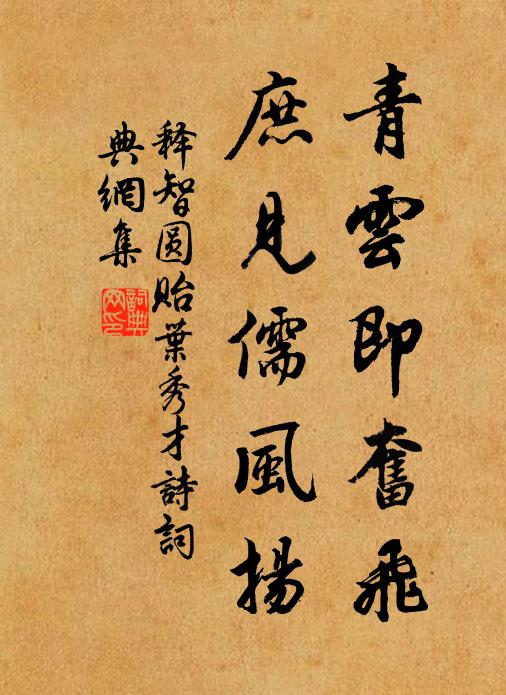 青雲即奮飛
庶見儒風揚
释智圆贻葉秀才詩詞
典網集
詞典网印